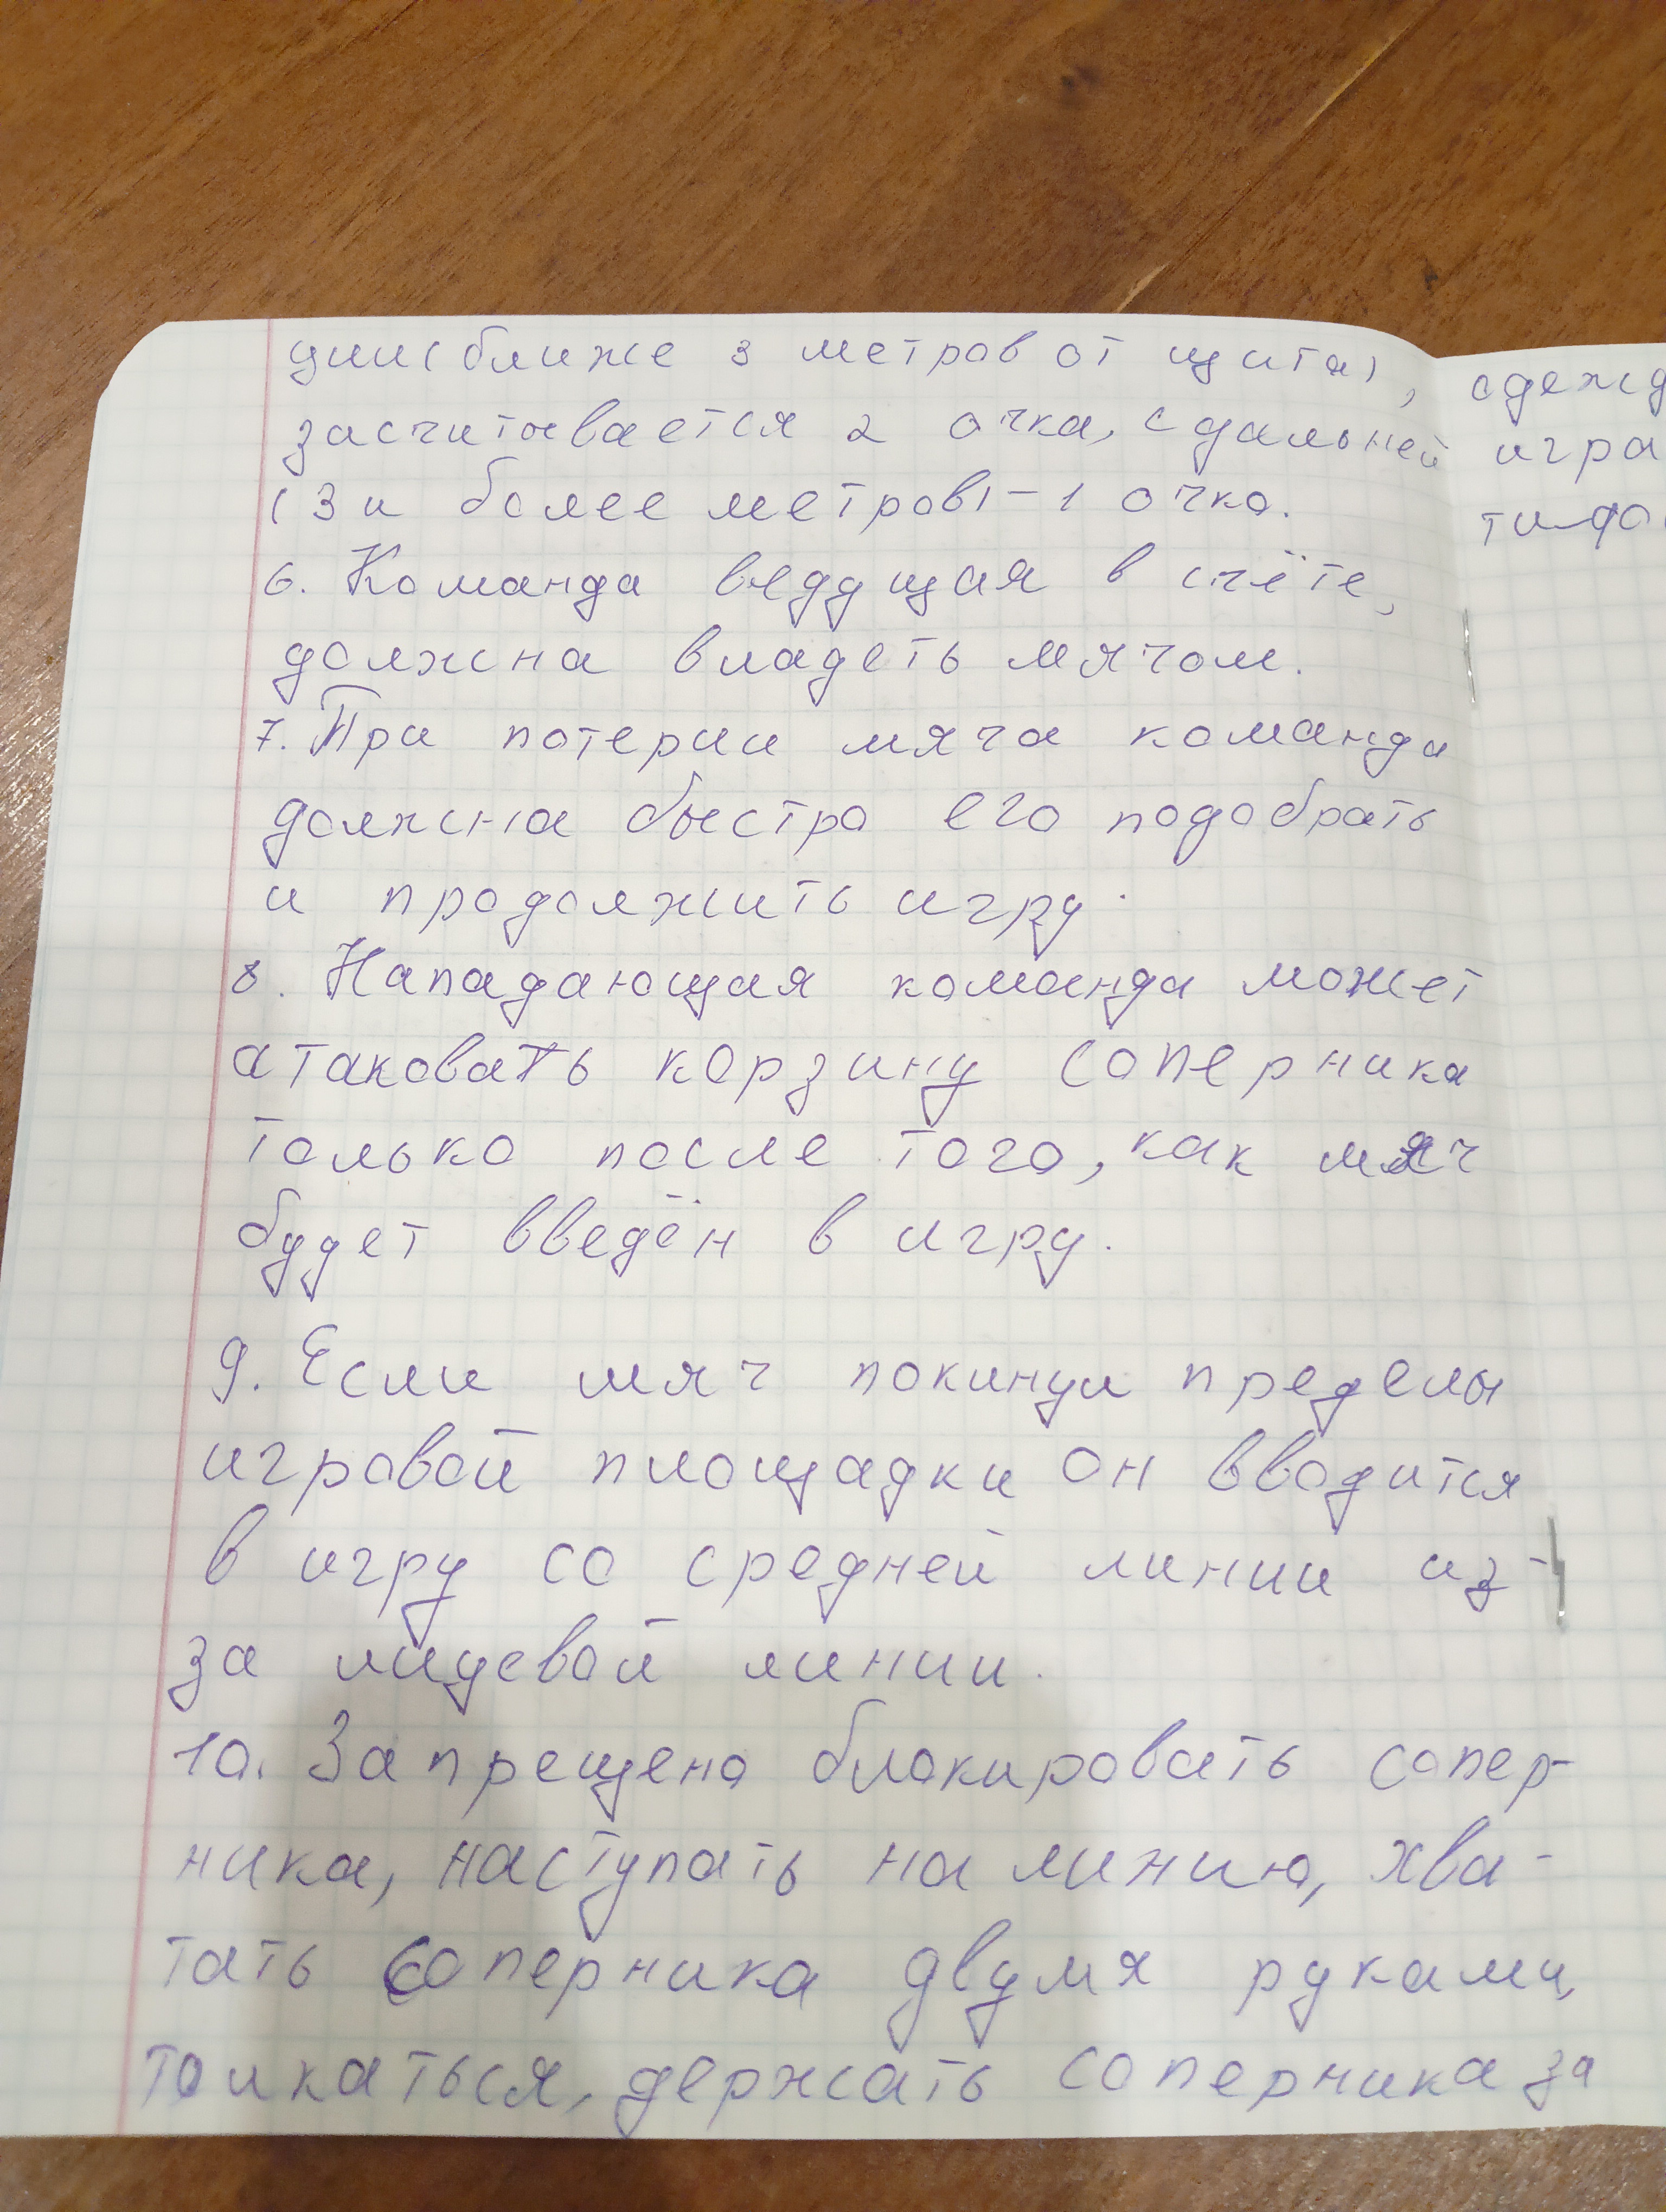 ции (ближе 3 метров от щита),
засчитывается 2 очка, с дальней
(3 и более метров) - 1 очко.
6. Команда ведущая в счёте,
должна владеть мячом.
7. При потери мяча команда
должна быстро его подобрать
и продолжить игру.
8. Нападающая команда может
атаковать корзину соперника
только после того, как мяч
будет введён в игру.
9. Если мяч покинул пределы
игровой площадки он вводится
в игру со средней линии из-
за лицевой линии.
10. Запрещено блокировать сопер-
ника, наступать на линию, хва-
тать соперника двумя руками,
толкаться, держать соперника за
одежд
игра